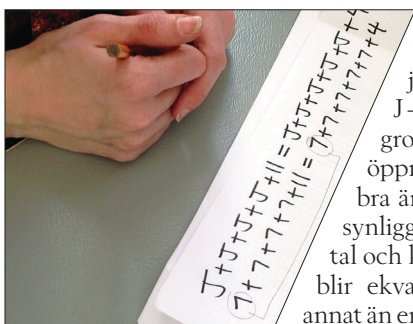 J+J+J+J+11=J+J+J+J+J+4
7+7+7+7+11=7+7+7+7+7+4
j
J
gro
öppn
bra är
synligg
tal och
blir ekva
annat än